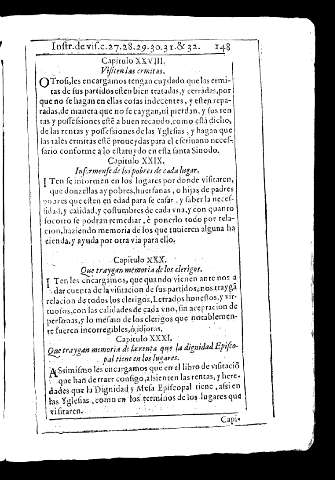 Instr. de vis. c. 27. 28. 29. 30. 31. & 32. 148
Capitulo XXVIII.
Visiten las ermitas.
OTrosi, les encargamos tengan cuydado que las ermi-
tas de sus partidos esten bien tratadas, y cerradas, por
que no se hagan en ellas cosas indecentes, y esten repa-
radas, de manera que no se caygan, ni pierdan, y sus ren
tas y possessiones esté a buen recaudo, como está dicho,
de las rentas y possessiones de las Yglesias, y hagan que
las tales ermitas esté proueydas para el seruicio neces-
sario conforme a lo estatuydo en esta santa Sinodo.
Capitulo XXIX.
Informense de los pobres de cada lugar.
ITen se informen en los lugares por donde visitaren,
que donzellas ay pobres, huerfanas, o hijas de padres
pobres que esten en edad para se casar, y saber la neces-
sidad, y calidad, y costumbres de cada vna, y con quanto
socorro se podran remediar, é ponerlo todo por rela-
cion, haziendo memoria de los que tuuieren alguna ha
zienda, y ayuda por otra via para ello.
Capitulo XXX.
Que traygan memoria de los clerigos.
ITen les encargamos, que quando vienen ante nos a
dar cuenta de la visitacion de sus partidos, nos traygã
relacion de todos los clerigos, Letrados honestos, y vir-
tuosos, con las calidades de cada vno, sin acepcion de
personas, y lo mesmo de los clerigos que notablemen-
te fueren incorregibles, ó idiotas.
Capitulo XXXI.
Que traygan memoria de la renta que la dignidad Episco-
pal tiene en los lugares.
ASsimismo les encargamos que en el libro de visitaciõ
que han de traer consigo, assienten las rentas, y here-
dades que la Dignidad y Mesa Episcopal tiene, assi en
las Yglesias, como en los terminos de los lugares que
visitaren.
Capi-